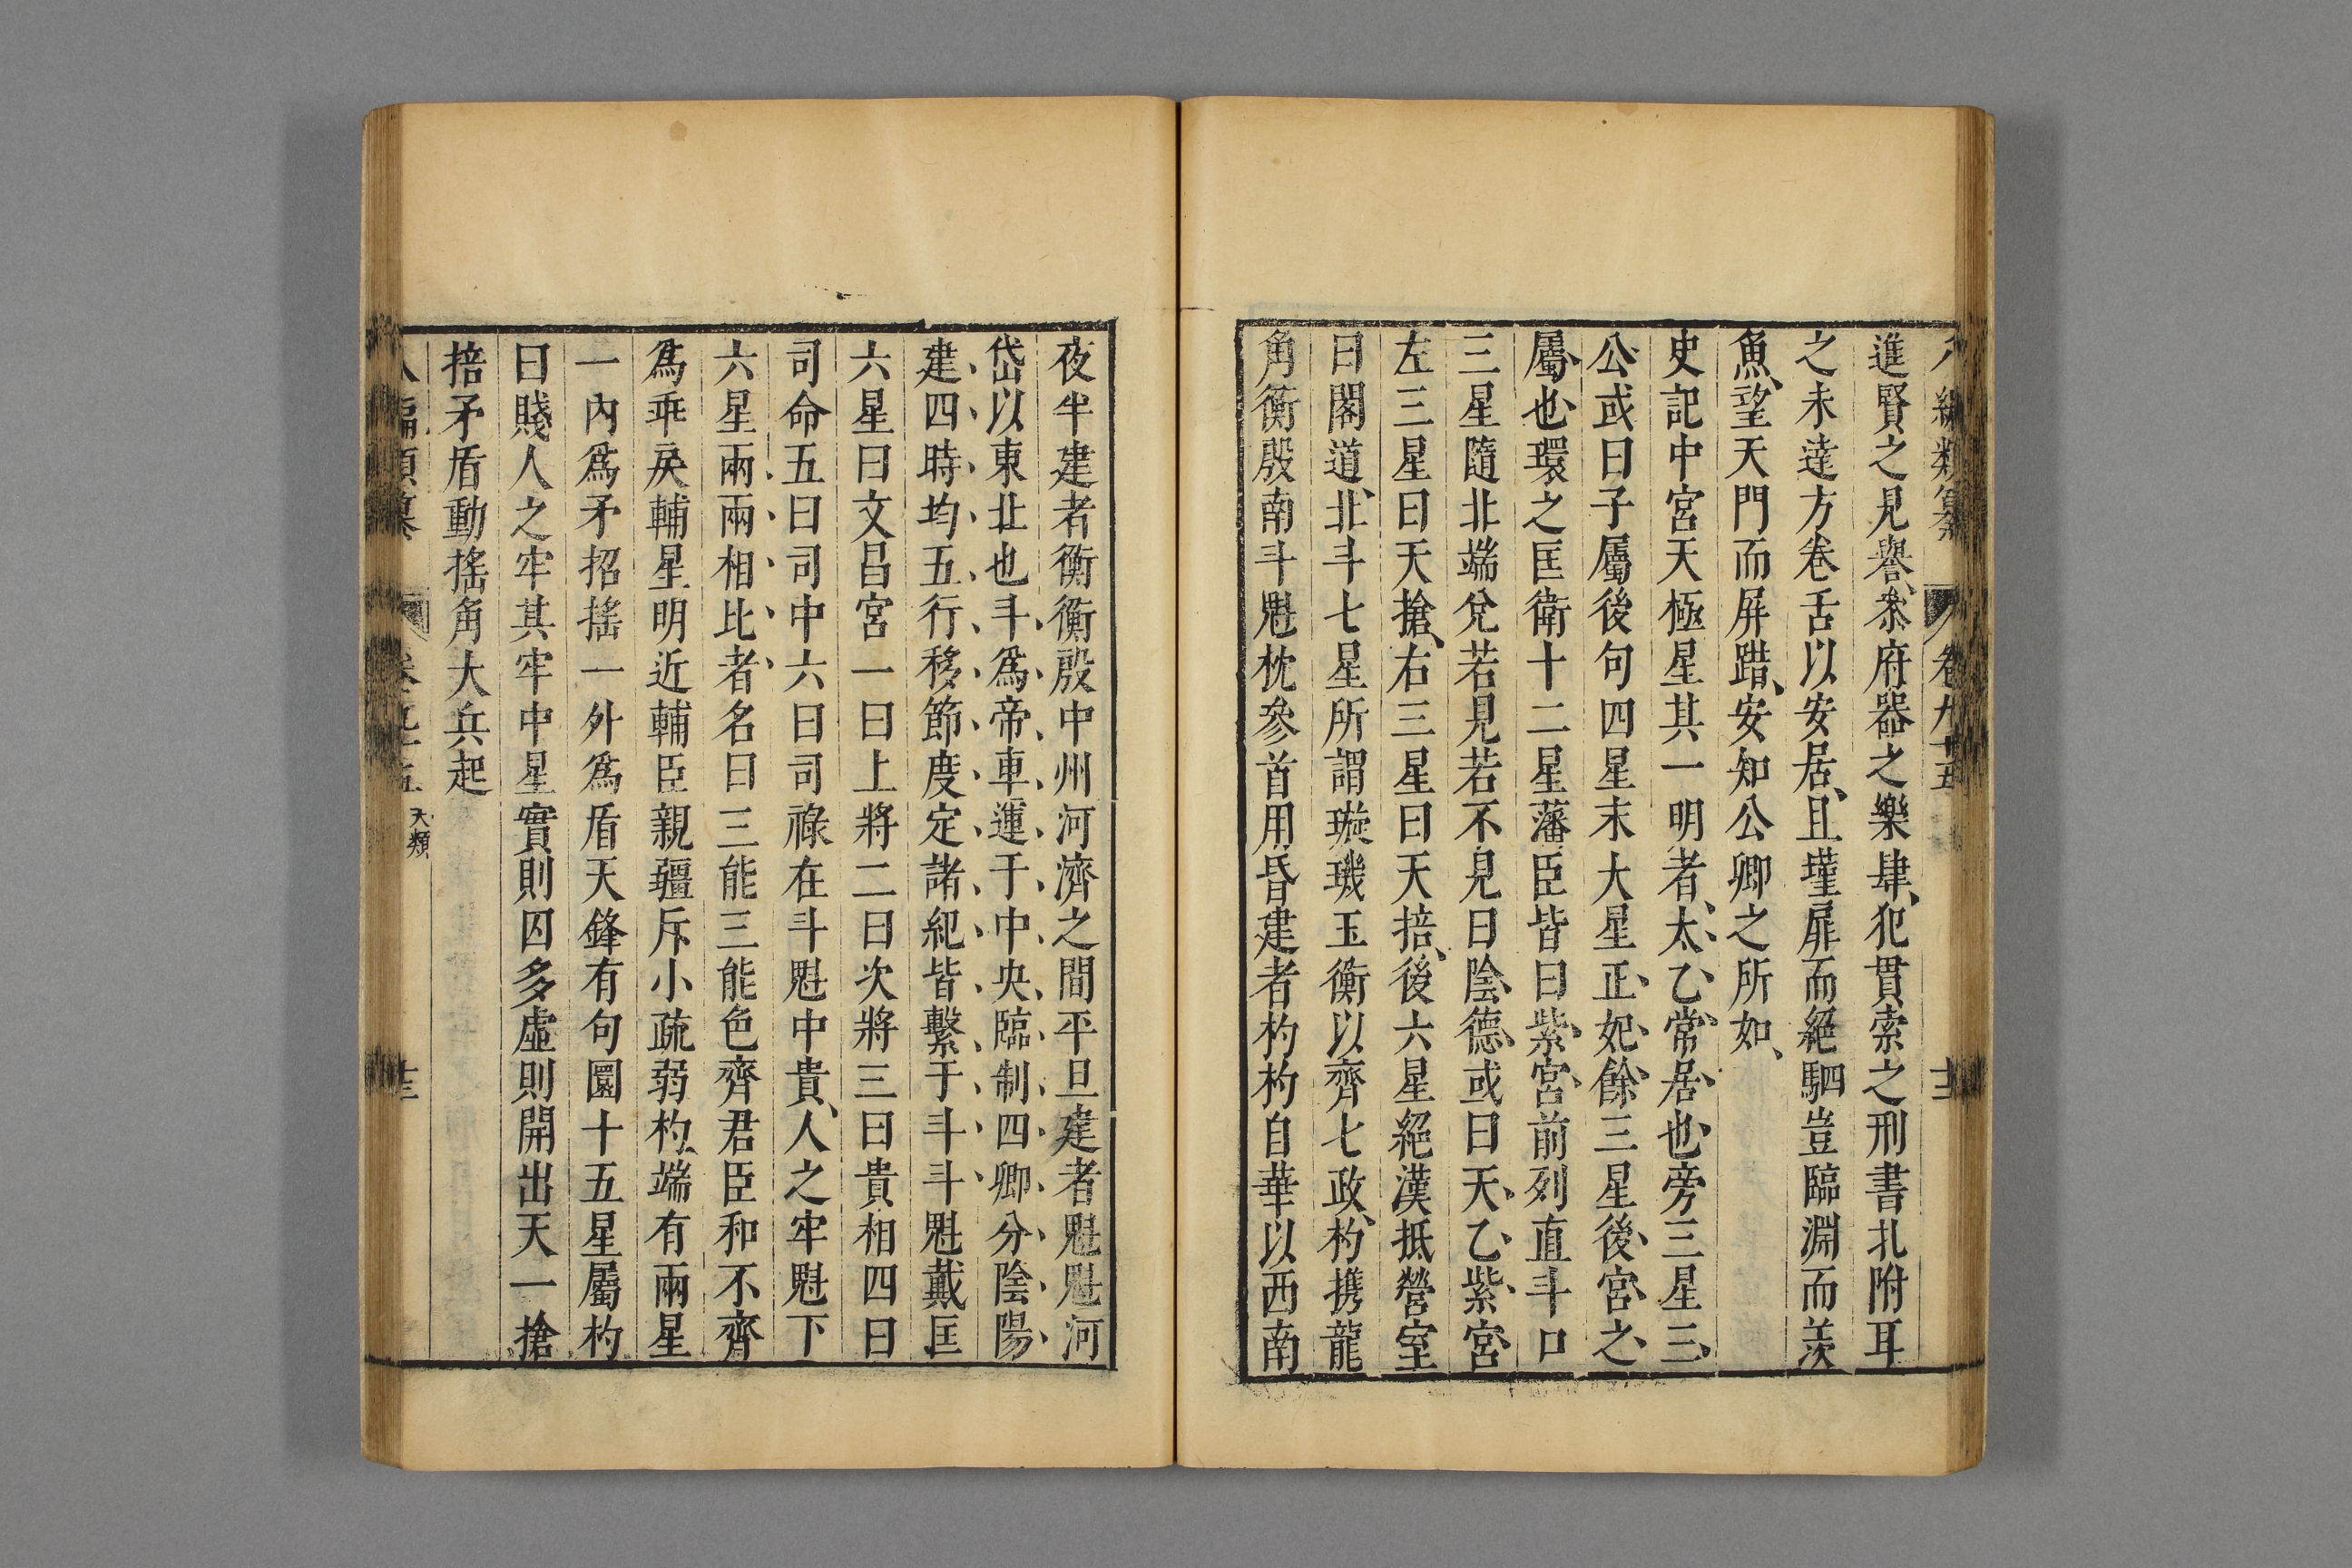 八編類纂 卷九十五 十三
進賢之見譽叅府器之樂肆犯貫索之刑書扎附耳
之未達方卷舌以安居且墐扉而絕駟豈臨淵而羡
魚望天門而屏踖安知公卿之所如
史記中宮天極星其一明者太乙常居也旁三星三
公或曰子屬後句四星末大星正妃餘三星後宮之
屬也環之匡衛十二星藩臣皆曰紫宮前列直斗口
三星隨北端兌若見若不見曰陰德或曰天乙紫宮
左三星曰天搶右三星曰天掊後六星絕漢抵營室
曰閣道北斗七星所謂璇璣玉衡以齊七政杓携龍
角衡殷南斗魁枕參首用昏建者杓杓自華以西南
夜半建者衡衡殷中州河濟之間平旦建者魁魁河
岱以東北也斗爲帝車運于中央臨制四卿分陰陽
建四時均五行移節度定諸紀皆繫于斗斗魁戴匡
六星曰文昌宮一曰上將二曰次將三曰貴相四曰
司命五曰司中六曰司祿在斗魁中貴人之牢魁下
六星兩兩相比者名曰三能三能色齊君臣和不齊
爲乖戾輔星明近輔臣親疆斥小疏弱杓端有兩星
一內爲矛招搖一外爲盾天鋒有句圜十五星屬杓
曰賤人之牢其牢中星實則囚多虛則開出天一搶
掊矛盾動搖角大兵起
八編類纂 卷九十五 天類 十三